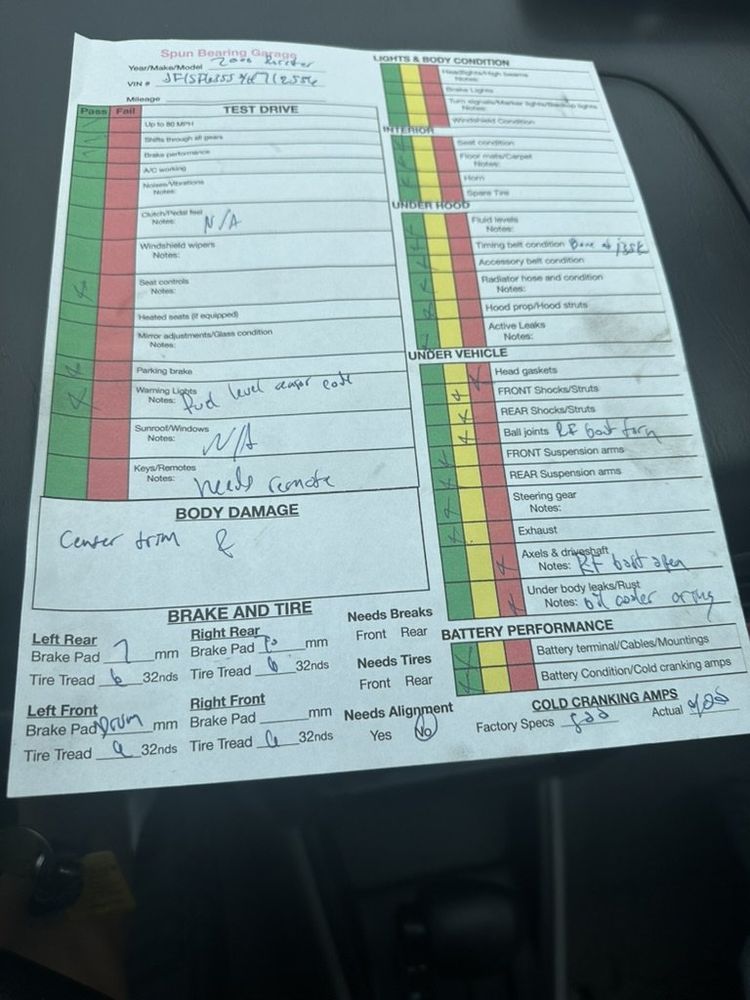 Spun Bearing Garage
Year/Make/Model 2000
VIN #
Mileage
Pass Fail TEST DRIVE
Up to 80 MPH
Shifts through all gears
Brake performance
A/C working
Noises/Vibrations
Notes:
Clutch/Pedal feel
Notes: N/A
Windshield wipers
Notes:
Seat controls
Notes:
Heated seats (if equipped)
Mirror adjustments/Glass condition
Notes:
Parking brake
Warning Lights
Notes: fuel level sensor code
Sunroof/Windows
Notes: N/A
Keys/Remotes
Notes: Needs remote
BODY DAMAGE
Center trim
LIGHTS & BODY CONDITION
Headlights/High beams
Notes:
Brake Lights
Turn signals/Marker lights/Backup lights
Notes:
Windshield Condition
INTERIOR
Seat condition
Floor mats/Carpet
Notes:
Horn
Spare Tire
UNDER HOOD
Fluid levels
Notes:
Timing belt condition Done at 135k
Accessory belt condition
Radiator hose and condition
Notes:
Hood prop/Hood struts
Active Leaks
Notes:
UNDER VEHICLE
Head gaskets
FRONT Shocks/Struts
REAR Shocks/Struts
Ball joints RF boot torn
FRONT Suspension arms
REAR Suspension arms
Steering gear
Notes:
Exhaust
Axels & driveshaft
Notes: RF boot open
Under body leaks/Rust
Notes: oil cooler oring
BRAKE AND TIRE
Left Rear
Brake Pad 7 mm
Tire Tread 6 32nds
Right Rear
Brake Pad mm
Tire Tread 6 32nds
Left Front
Brake Pad Drum mm
Tire Tread 6 32nds
Right Front
Brake Pad mm
Tire Tread 6 32nds
Needs Breaks
Front Rear
Needs Tires
Front Rear
Needs Alignment
Yes No
BATTERY PERFORMANCE
Battery terminal/Cables/Mountings
Battery Condition/Cold cranking amps
COLD CRANKING AMPS
Factory Specs Actual